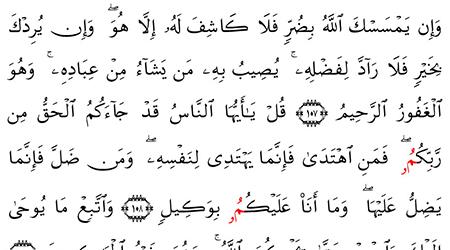 وَإِن يَمْسَسْكَ اَ۬للَّهُ بِضُرّٖ فَلَا كَاشِفَ لَهُۥ إِلَّا هُوَۖ وَإِن يُرِدْكَ
بِخَيْرٖ فَلَا رَآدَّ لِفَضْلِهِۦۚ يُصِيبُ بِهِۦ مَن يَشَآءُ مِنْ عِبَادِهِۦۚ وَهُوَ
اَ۬لْغَفُورُ اُ۬لرَّحِيمُ ١٠٧ قُلْ يَٰٓأَيُّهَا اَ۬لنَّاسُ قَدْ جَآءَكُمُ اُ۬لْحَقُّ مِن
رَّبِّكُمُۥۖ فَمَنِ اِ۪هْتَدَىٰ فَإِنَّمَا يَهْتَدِى لِنَفْسِهِۦۖ وَمَن ضَلَّ فَإِنَّمَا
يَضِلُّ عَلَيْهَاۖ وَمَا أَنَا۠ عَلَيْكُمُۥ بِوَكِيلٖ ١٠٨ وَاتَّبِعْ مَا يُوحَىٰٓ